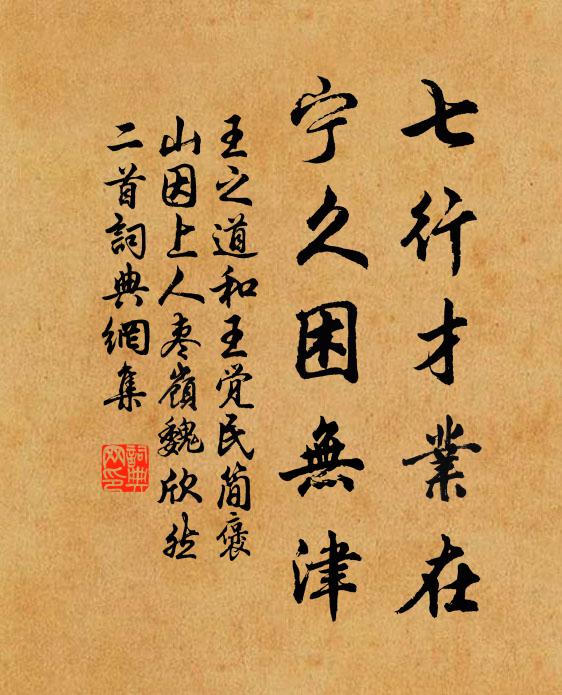 七行才業在
宁久困無津
王之道和王觉民简褒
山因上人枣嶺魏欣然
二首詞典網集
詞典網印